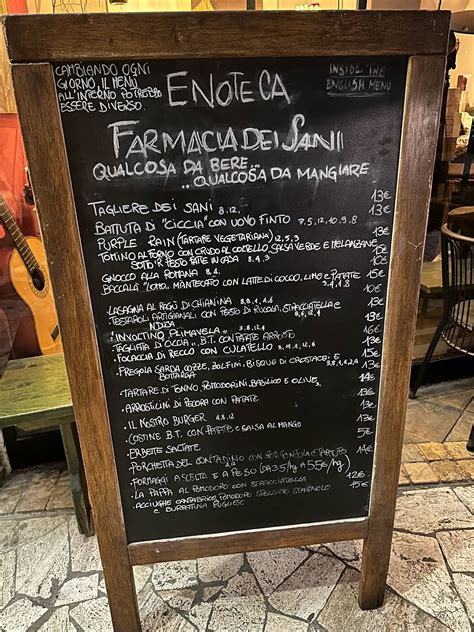 CAMBIANDO OGNI
GIORNO, IL MENU
ALL'INTERNO POTREBBE
ESSERE DIVERSO.
ENOTECA
INSIDE THE
ENGLISH MENU
FARMACIA DEI SANI
QUALCOSA DA BERE...
...QUALCOSA DA MANGIARE
TAGLIERE DEI SANI 8,12, 13€
BATTUTA DI "CICCIA" CON UOVO FINTO 7,5,12,10,9,8 13€
PURPLE RAIN (TARTARE VEGETARIANA) 12,5,3 13€
TOMINO AL FORNO CON CRUDO AL COLTELLO SALSA VERDE E MELANZANE
SOTTO E PESTO FATTE IN CASA 8,4,3
GNOCCO ALLA ROMANA 8,4
BACCALÀ MANTECATO CON LATTE DI COCCO, LIME E PATATE
LASAGNA AL RAGÙ DI CHIANINA
TESTAROLI ARTIGIANALI CON PESTO DI RUCOLA, STRACCIATELLA E
NDUJA
INVOLTINO PRIMAVERA 3,8,12,4
TAGLIATA DI CICCIA B.T. CON PATATE ARROSTO
FOCACCIA DI RECCO CON CULATELLO
FREGOLA SARDA, COZZE, ZOLFINI, BISQUE DI CROSTACEI E
BOTTARGA
TARTARE DI TONNO POMODORINI, BASILICO E OLIVE
ARROSTICINI DI PECORA CON PATATE
IL NOSTRO BURGER 4,8,12
COSTINE B.T. CON PATATE E SALSA AL MANGO
ERBETTE SALTATE 5€
PORCHETTA DEL CONTADINO CON 14€
FORMAGGI A SCELTA E A PESO (DA 35/kg A 55€/kg)
LA PAPPA AL POMODORO CON STRACCIATELLA 12€
ACCIUGHE CANTABRICO POMODORO 15€
E BURRATINA PUGLIESE